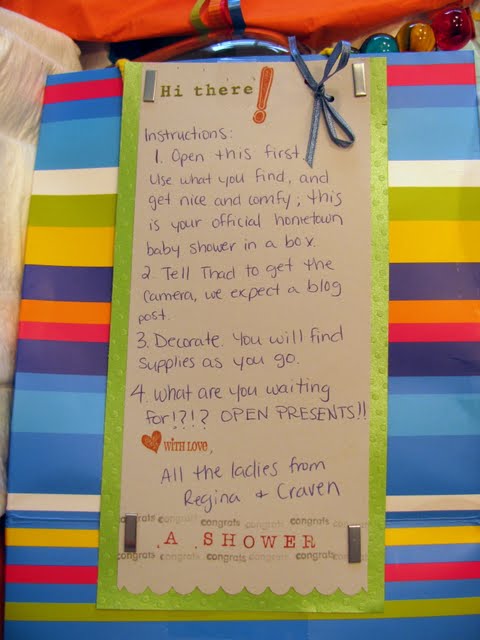 Hi there!
Instructions:
1. Open this first.
Use what you find, and
get nice and comfy; this
is your official hometown
baby shower in a box.
2. Tell Thad to get the
camera, we expect a blog
post.
3. Decorate. You will find
supplies as you go.
4. What are you waiting
for!?!? OPEN PRESENTS!!
WITH LOVE,
All the ladies from
Regina & Craven
congrats congrats congrats congrats congrats
congrats congrats congrats congrats
A SHOWER
congrats congrats congrats congrats